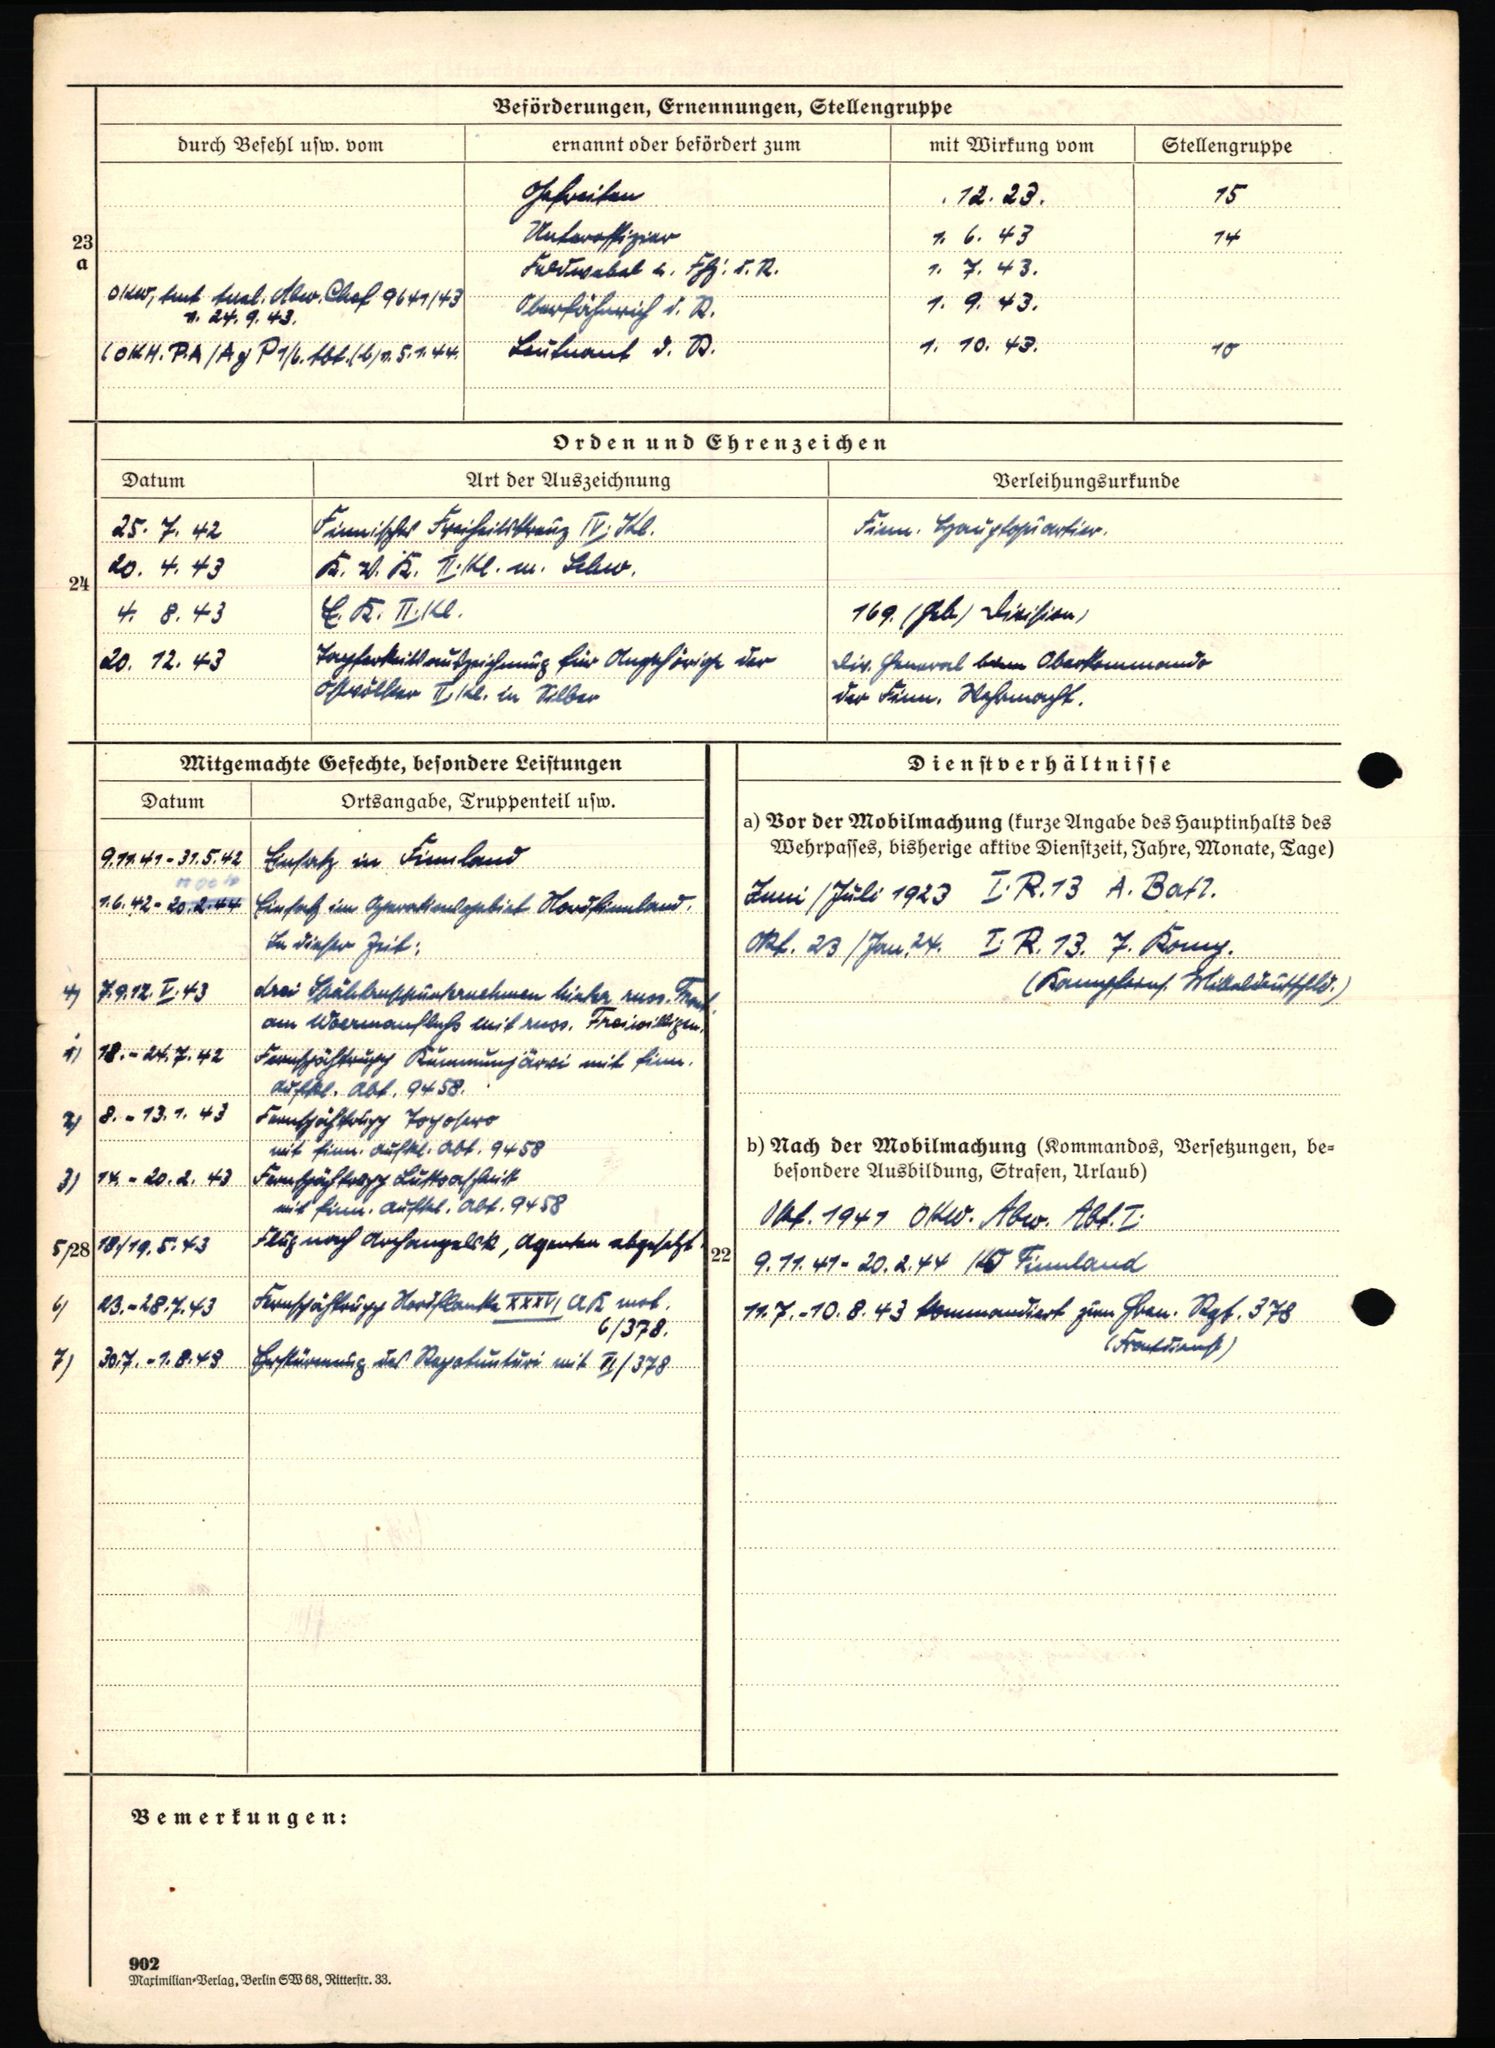 Beförderungen, Ernennungen, Stellengruppe
durch Befehl usw. vom
ernannt oder befördert zum
mit Wirkung vom
Stellengruppe
23
a
Gefreiten
. 12. 23.
15
Unteroffizier
1. 6. 43
14
Feldwebel u. Fhj. d. R.
1. 7. 43.
OKW, Amt Ausl. Abw. Chef 9641/43
v. 24. 9. 43.
Oberfähnrich d. R.
1. 9. 43.
(OKH. P.A/Ag P1/6. Abt. (b) v. 5. 1. 44.
Leutnant d. R.
1. 10. 43.
10
Orden und Ehrenzeichen
Datum
Art der Auszeichnung
Verleihungsurkunde
24
25. 7. 42
Finnisches Freiheitskreuz IV. Kl.
Finn. Hauptquartier.
20. 4. 43
K. V. K. II. Kl. m. Schw.
4. 8. 43
E. K. II. Kl.
169. (Geb.) Division
20. 12. 43
Tapferkeitsauszeichnung für Angehörige der
Ostvölker II. Kl. in Silber
Div. General beim Oberkommando
der Finn. Wehrmacht.
Mitgemachte Gefechte, besondere Leistungen
Datum
Ortsangabe, Truppenteil usw.
9.11.41 - 31.5.42
Einsatz in Finnland
1.6.42 - 20.2.44
Einsatz im Operationsgebiet Nordfinnland.
In dieser Zeit:
4)
7.9.12. V. 43
drei Spähtruppunternehmen hinter russ. Front
am mit russ. Freiwilligen.
1)
18. - 24.7.42
Fernspähtrupp mit finn.
Aufkl. Abt. 9458.
2)
8. - 13. 1. 43
Fernspähtrupp
mit finn. Aufkl. Abt. 9458
3)
14. - 20. 2. 43
Fernspähtrupp
mit finn. Aufkl. Abt. 9458
5/28
18/19. 5. 43
Flug nach Archangelsk, Agenten abgesetzt
6)
23. - 28.7.43
Fernspähtrupp Nordflanke XXXVI AK mot.
6/378.
7)
30.7. - 1.8.43
Erstürmung des mit II/378
22
Dienstverhältnisse
a) Vor der Mobilmachung (kurze Angabe des Hauptinhalts des
Wehrpasses, bisherige aktive Dienstzeit, Jahre, Monate, Tage)
Juni / Juli 1923 I. R. 13 A. Batl.
Okt. 23 / Jan. 24. I. R. 13. 7. Komp.
b) Nach der Mobilmachung (Kommandos, Versetzungen, be-
besondere Ausbildung, Strafen, Urlaub)
Okt. 1941 OKW. Abw. Abt. I.
9. 11. 41 - 20. 2. 44 KO Finnland
11. 7. - 10. 8. 43 kommandiert zum Gren. Rgt. 378
(Frontdienst)
Bemerkungen:
902
Maximilian-Verlag, Berlin SW 68, Ritterstr. 33.